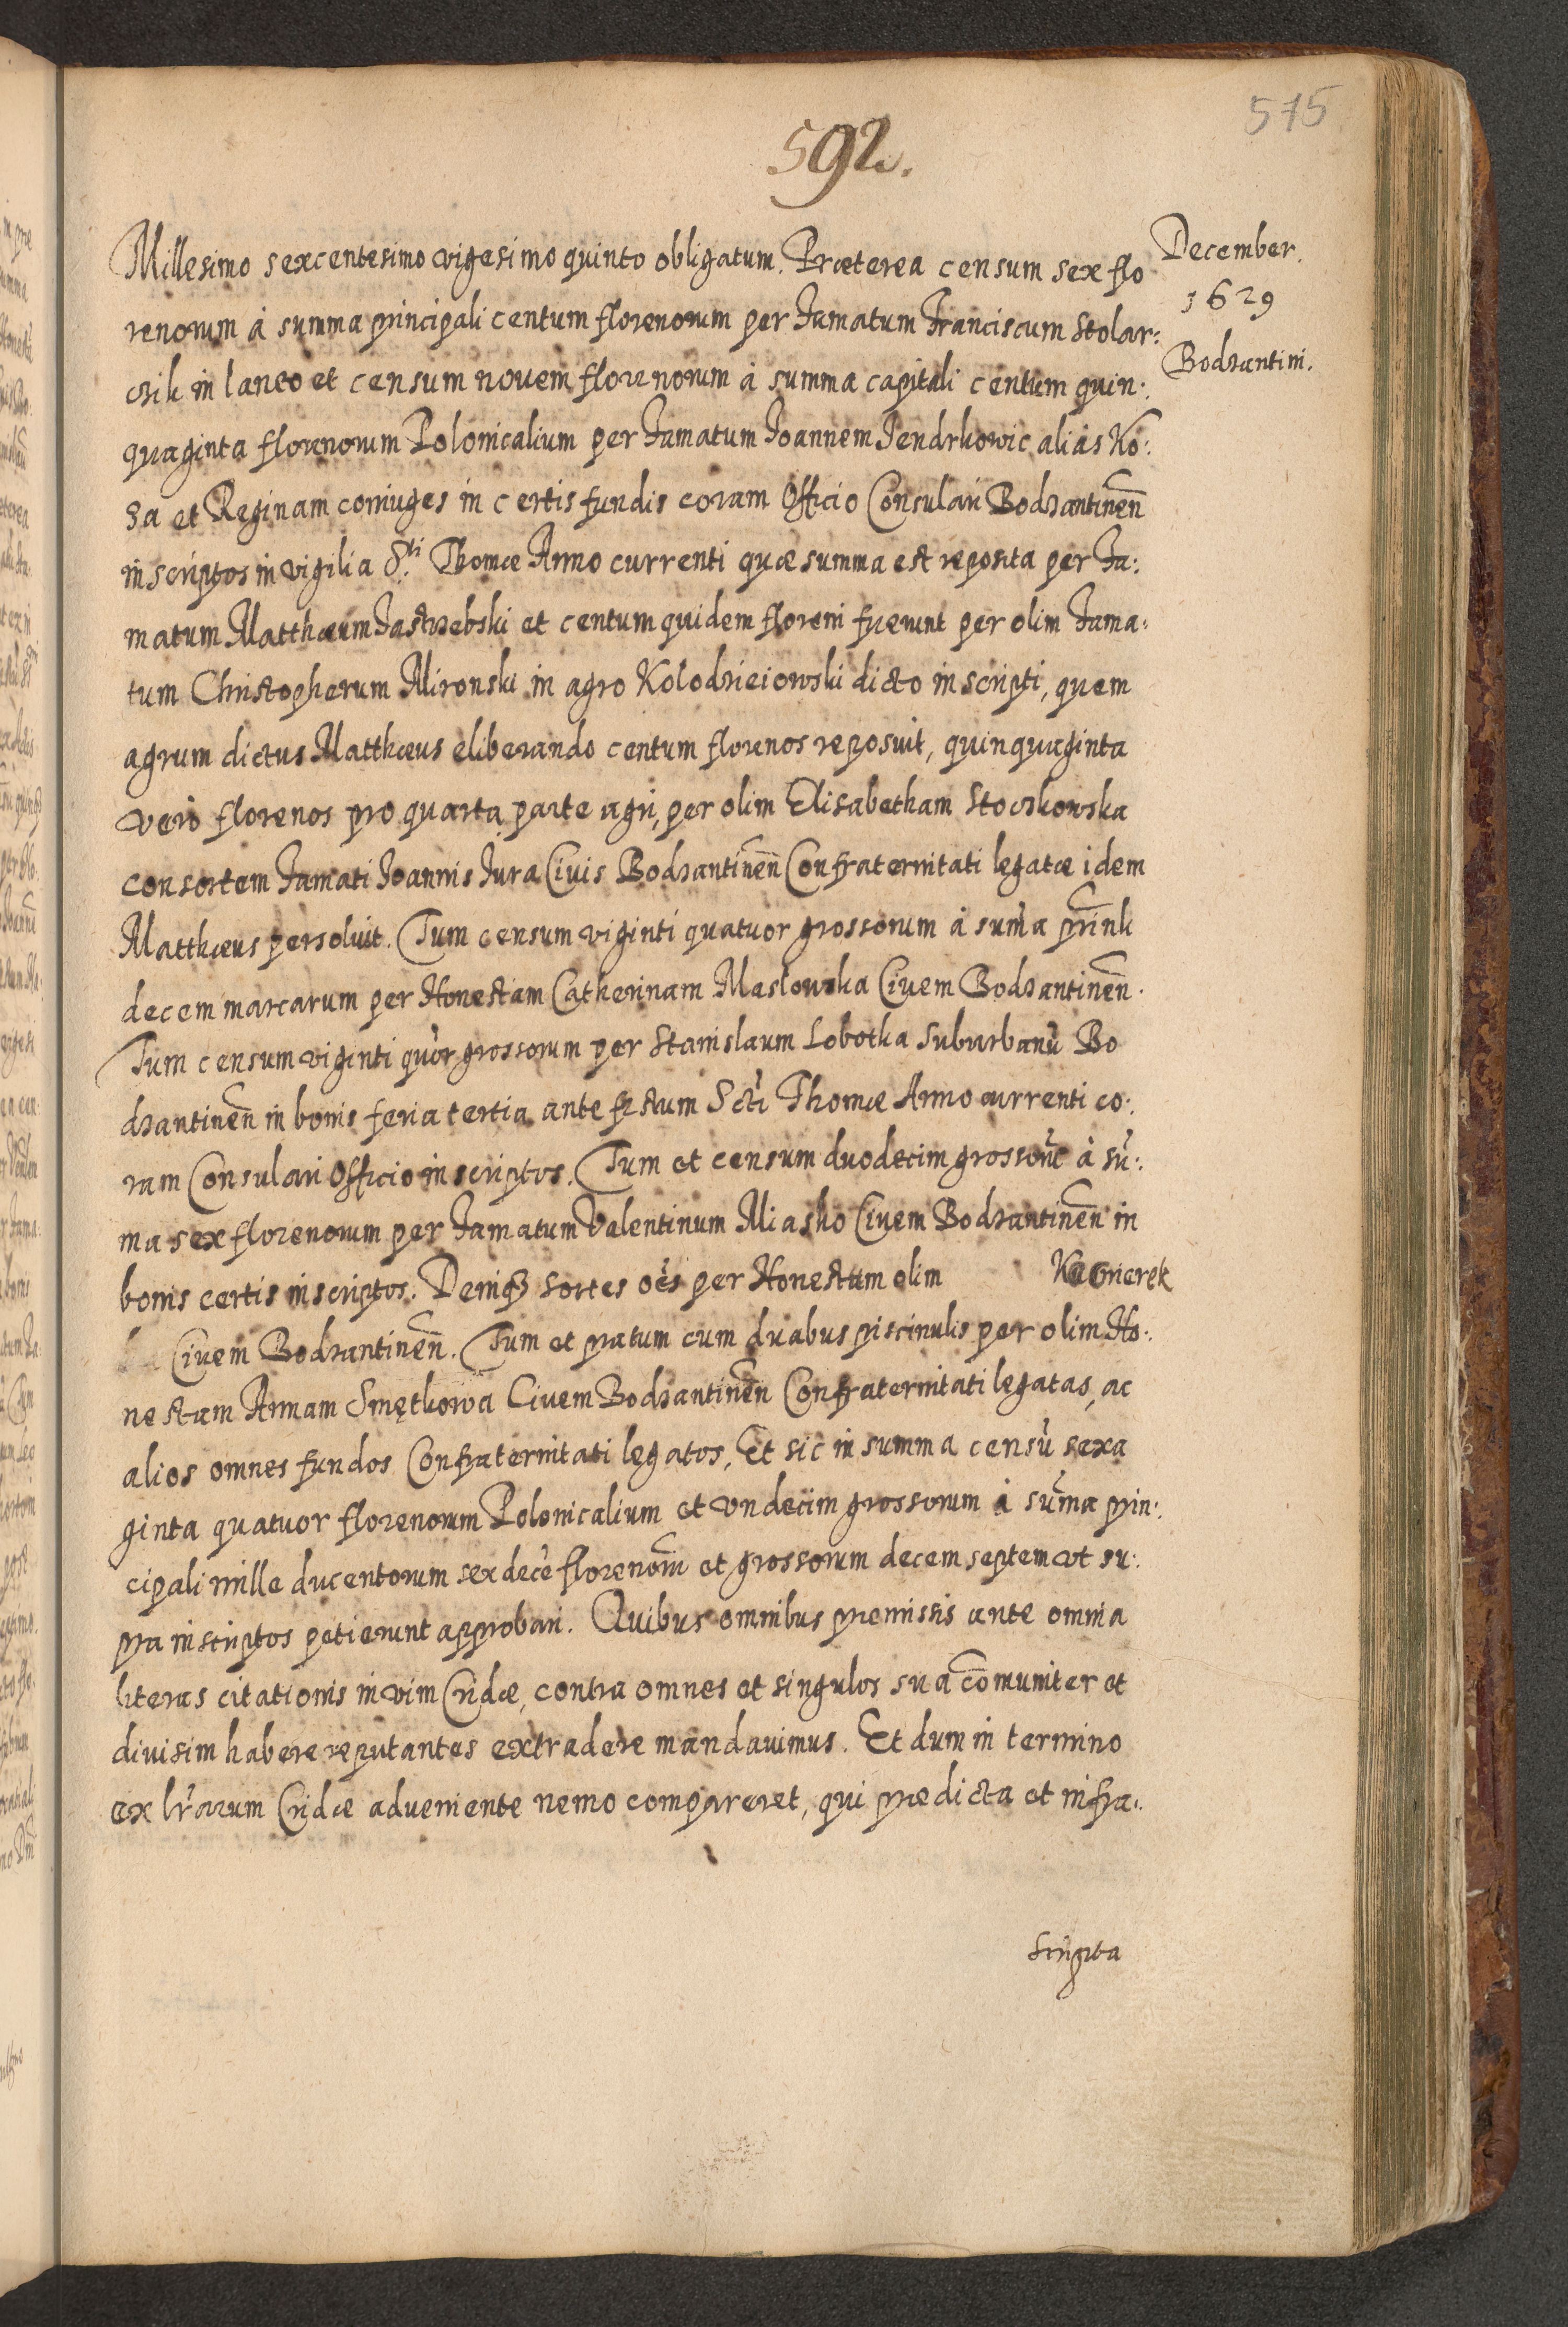 575
592.
December.
1629
Bodzantini.
Millesimo sexcentesimo vigesimo quinto obligatum. Præterea censum sex flo
renorum à summa principali centum florenorum per Famatum Franciscum Stolar:
czik in laneo et censum novem florenorum à summa capitali centum quin:
quaginta florenorum Polonicalium per Famatum Joannem Jendrkowic aliàs Ko:
za et Reginam coniuges in certis fundis coram Officio Consulari Bodzantinen̄
inscriptos in vigilia S.ti Thomæ Anno currenti quæ summa est reposita per Fa:
matum Matthæum Jastrzebski et centum quidem floreni fuerunt per olim Fama:
tum Christopherum Mironski in agro Kolodzieiowski dicto inscripti, quem
agrum dictus Matthæus eliberando centum florenos reposuit, quinquaginta
verò florenos pro quarta parte agri, per olim Elisabetham Stoczkowska
consortem Famati Joannis Jura Civis Bodzantinen̄ Confraternitati legatæ idem
Matthæus persoluit. Tum censum viginti quatuor grossorum à sum̃a prinli
decem marcarum per Honestam Catherinam Maslowska Civem Bodzantinen̄.
Tum censum viginti qu̓or grossorum per Stanislaum Lobotka Suburbanũ Bo
dzantinen̄ in bonis feria tertia ante festum Scti Thomæ Anno currenti co:
ram Consulari Officio inscriptos. Tum et censum duodecim grossorũ à sũ:
ma sex florenorum per Famatum Valentinum Miasko Civem Bodzantinen̄ in
bonis certis inscriptos. Deniq3 sortes oẽs per Honestam olim Kacznerek
Civem Bodzantinen̄. Tum et pratum cum duabus piscinulis per olim Ho:
nestam Annam Smętkowa Civem Bodzantinen̄ Confraternitati legatas, ac
alios omnes fundos Confraternitati legatos, Et sic in summa censũ sexa
ginta quatuor florenorum Polonicalium et vndecim grossorum à sum̃a prin:
cipali mille ducentorum sexdecẽ florenorũ et grossorum decem septem vt su:
pra inscriptos petierunt approbari. Quibus omnibus premissis ante omnia
literas citationis in vim Cridæ, contra omnes et singulos sua com̄uniter et
divisim habere reputantes extradere mandavimus. Et dum in termino
ex lr̃arum Cridæ adveniente nemo compareret, qui predicta et infra:
scripta